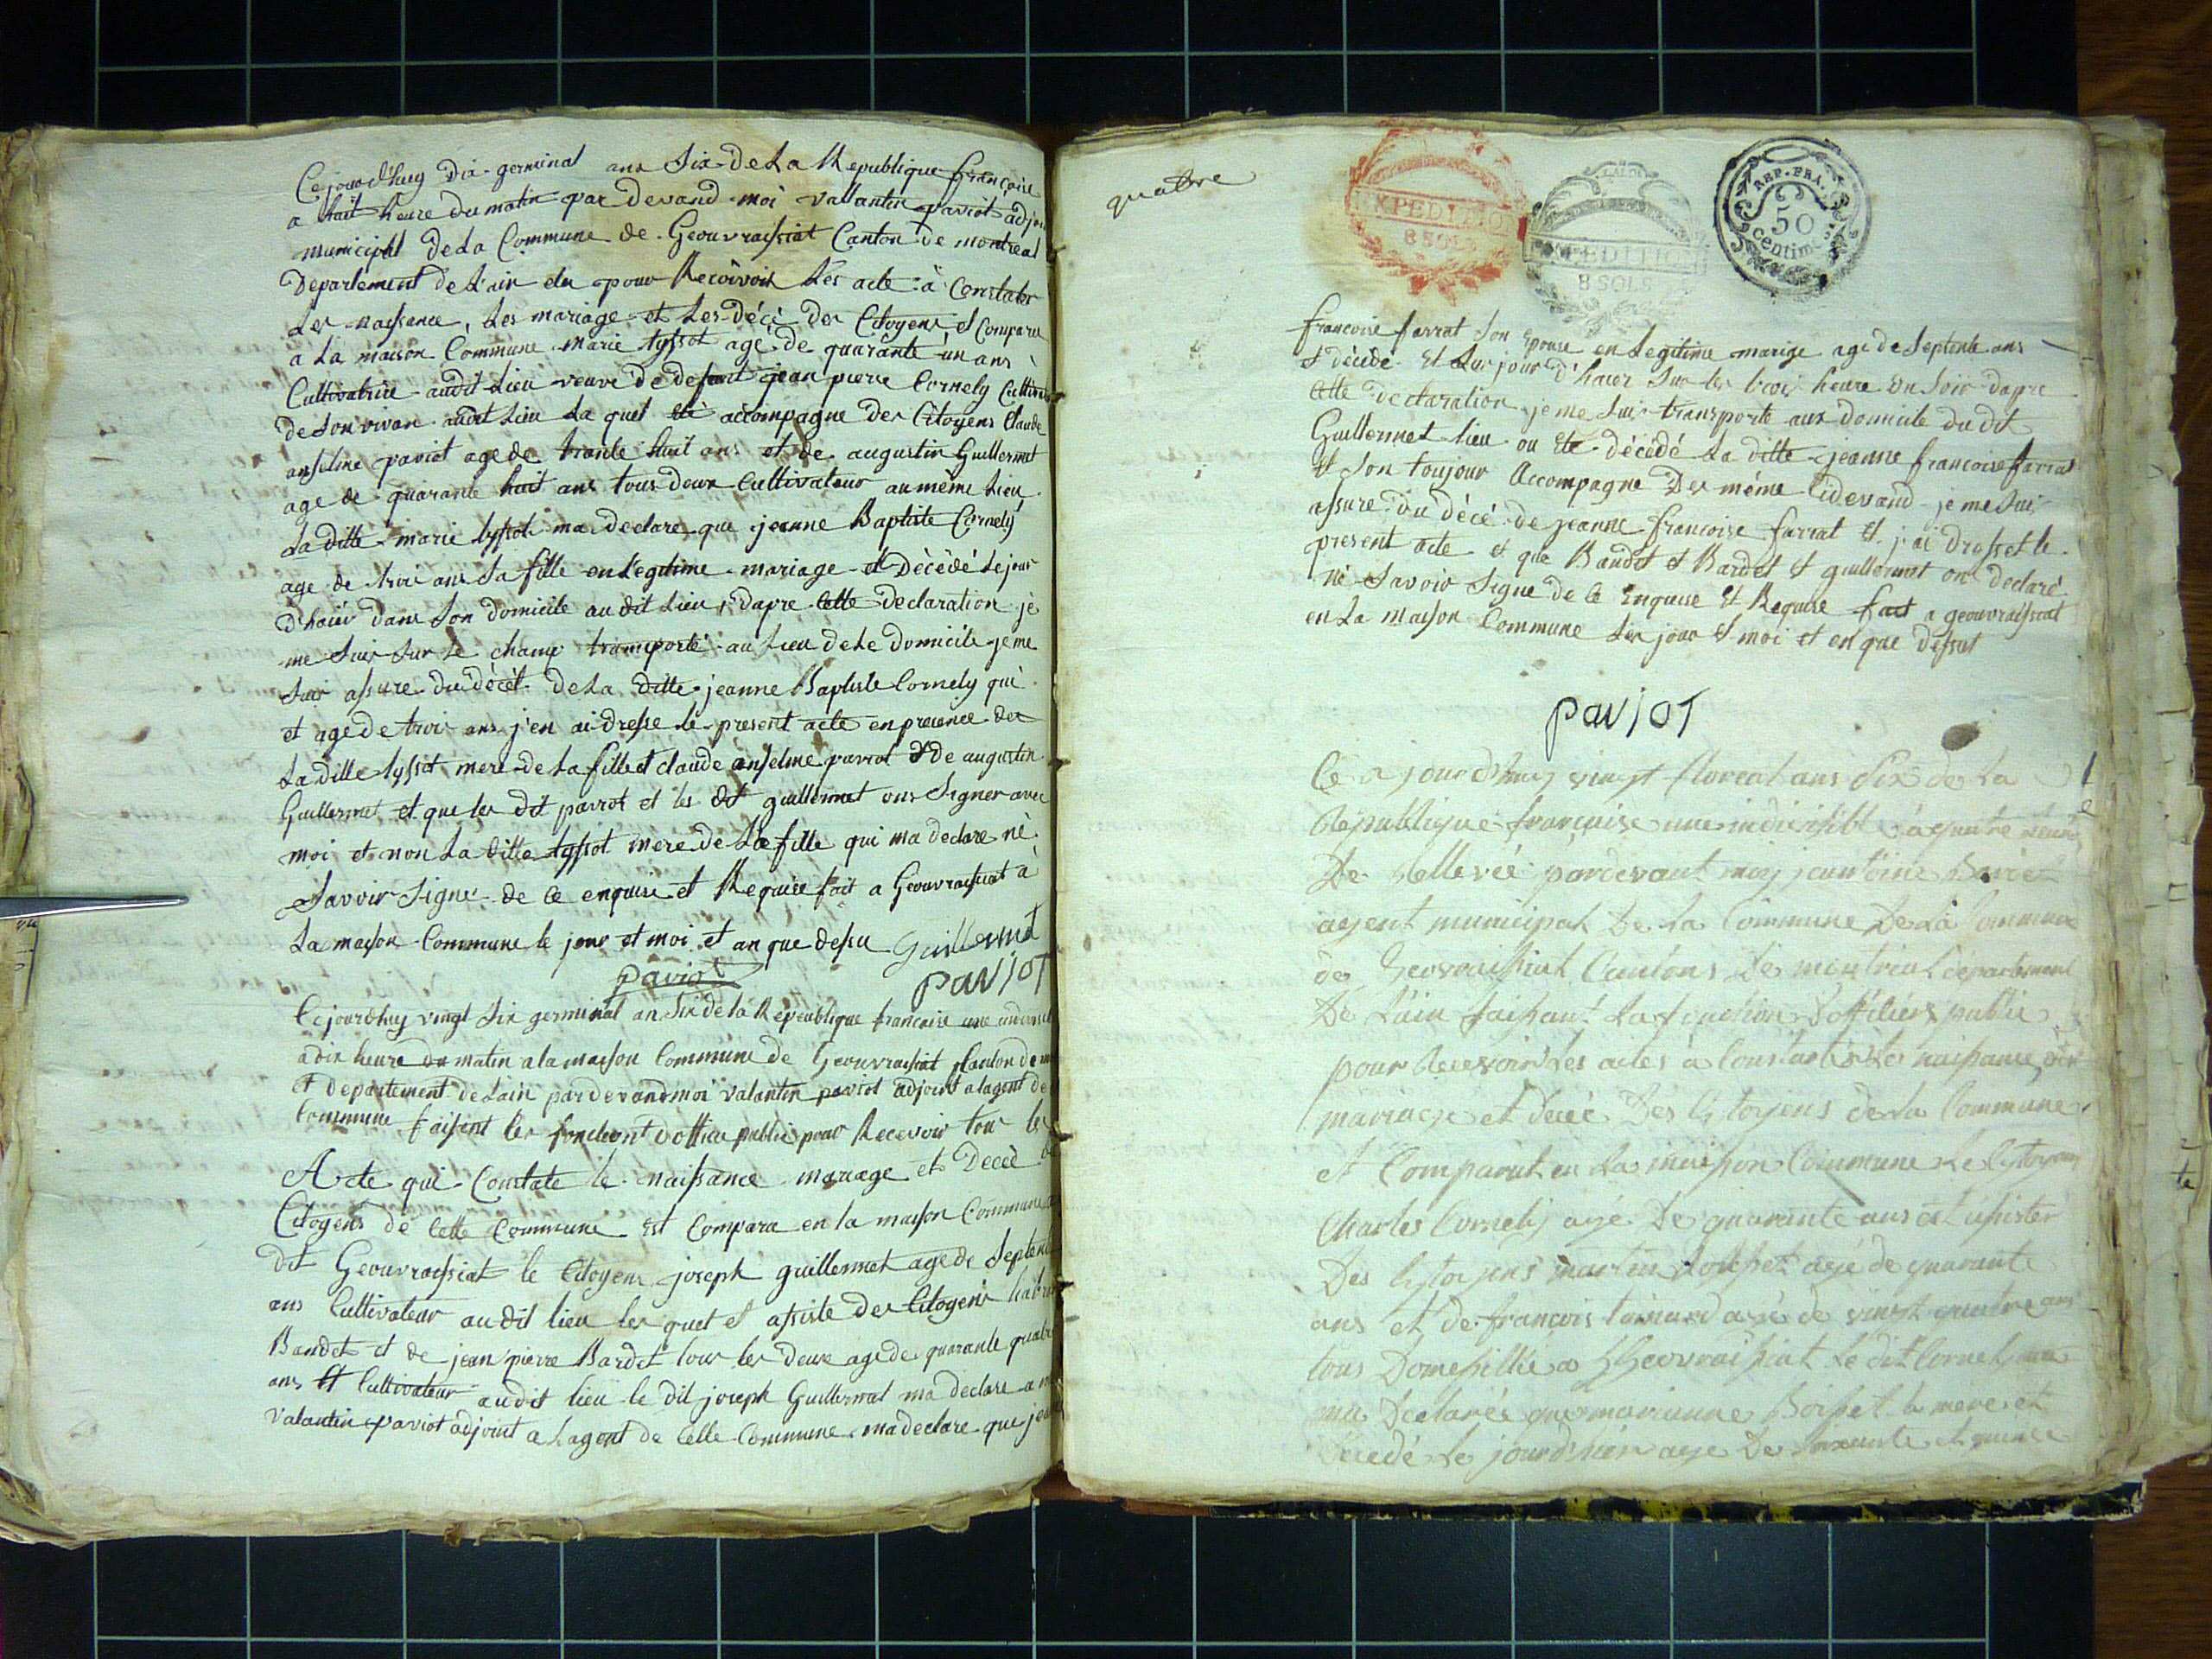 Cejourdhuy Dix germinal ans Six De La Republique françoise
a huit heure du matin par devand moi vallantin paviot adjoin
municipal De La Commune de Geouvraissiat Canton de montreal
Departement de L'ain elu pour Recoivoir Les acte à Constater
Les naissance, Les mariage et Les Décè des Citoyens et Comparu
a La maison Commune marie tyssot agé de quarante un ans
Cultivatrice audit Lieu veuve de defunt jean pierre Cornely Cultiva
de Son vivan audit Lieu La quel été accompagne des Citoyens Claude
anselme paviot age de trante huit ans et de augustin Guillermet
age de quarante huit ans tous deux Cultivateur au même Lieu
La ditte marie tyssot ma declare que jeanne Baptiste Cornely
age de trois ans Sa fille en Legitime mariage et Dècèdé Le jour
d'haier dans Son domicile au dit Lieu, Dapre Cette Declaration jè
me Suis Sur Le champ transporté au Lieu de Le Domicile je me
Suis assure du décèt de La ditte jeanne Baptiste Cornely qui
et age de trois ans j'en ai dresse le present acte en presence des
La ditte tyssot mere de La fille et claude anselme paviot et de augustin
Guillermet et que les dit paviot et les dit guillermet ons Signer avec
moi et non La ditte tyssot mere de La fille qui ma declare nè
Savoir Signé de Ce enquise et Requise fait a Geouvraissiat a
La maison Commune le jour et moi et an que dessu Guillermet
paviot paviot
Cejourdhuy vingt Six germinal an Six de la Republique francaise une
a dix heure du matin a la maison Commune de Geouvraissiat Canton de
et departement de Lain par devand moi valantin paviot adjoint a lagent de
Commune faisent les fonctiont dofficie public pour Recevoir tous les
Acte qui Constate le naissance mariage et Décèe
Citoyens de Cette Commune est Compara en la maison Commune
dit Geouvraissiat le Citoyens joseph guillermet age de Septente
ans Cultivateur au dit lieu les quet et assiste des Citogens
Baudet et de jean pierre Bardet tous les deux age de quarante quatre
ans et Cultivateur audit lieu le dit joseph Guillermet ma declare a
Valantin paviot adjoint a Lagent de Cette Commune ma declare que
quatre
EXPEDITION
8 SOLS
EXPEDITION
8 SOLS
REP. FRA.
50
Centim.
francoise farrat Son Epouse en Legitime marige age de Septente ans
et décédé et Sur jour d'haier Sur les trois heure du Soir Dapre
Cette declaration je me Suis transporte aux domicile du dit
Guillermet lieu ou Eté décédé La ditte jeanne francoise farrat
et Son toujour Accompagne Des même Cidevand je me Suis
assure du décé de jeanne francoise farrat et j'ai Dresset le
present acte et que Baudet et Bardet et guillermet on declaré
nè Savoir Signe de Ce Enquise et Requise fait a geouvraissiat
en La maison Commune Les jour et moi et en que dessut
paviot
Ce a jourdhuy vingt floreal ans Six de La
République française une indivisible a quatre heure
De Rellevée pardevant moi
agent municipal De La Commune De La Commune
de Geovraissiat Cantons De montreal departement
De Lain faisant La fonction D'officiers public
pour Recevoir Les actes à Constater Le naissance,
mariage et décé Des Citoyens de La Commune
et Comparut en La maison Commune Le Cytoyens
Charles Cornely agé De quarante ans et assister
Des Cytoyens martin agé de quarante
ans et de françois agé de vingt quatre ans
tous Domesillié a Geovraissiat Le dit Cornely
ma Declarée que marianne la mere et
Décedé Le jourdhier age De Soixante et quinze